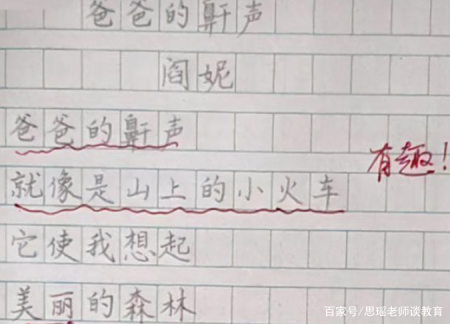 爸爸的鼾声
阎妮
爸爸的鼾声
就像是山上的小火车
有趣!
它使我想起
美丽的森林
百家号/思瑶老师谈教育